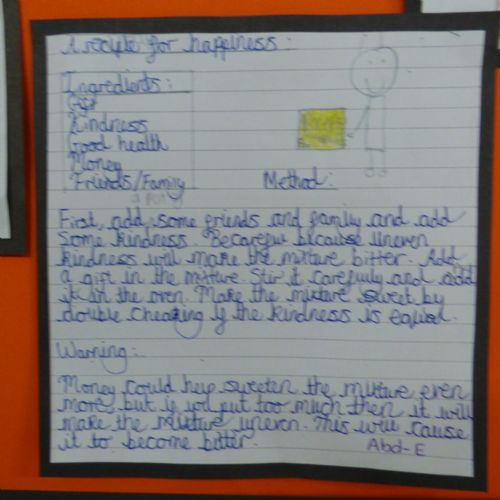 A recipie for happiness:
Ingredients:
Gift
Kindness
Good health
Money
Friends/Family
Method:
First, add some friends and family and add
some kindness. Becareful because uneven
kindness will make the mixture bitter. Add
a gift in the mixture. Stir it carefully and add
it in the oven. Make the mixture sweet by
double cheaking if the kindness is equal.
Warning:
Money could help sweeten the mixture even
more, but if you put too much then it will
make the mixture uneven. This will cause
it to become bitter.
Abd-E